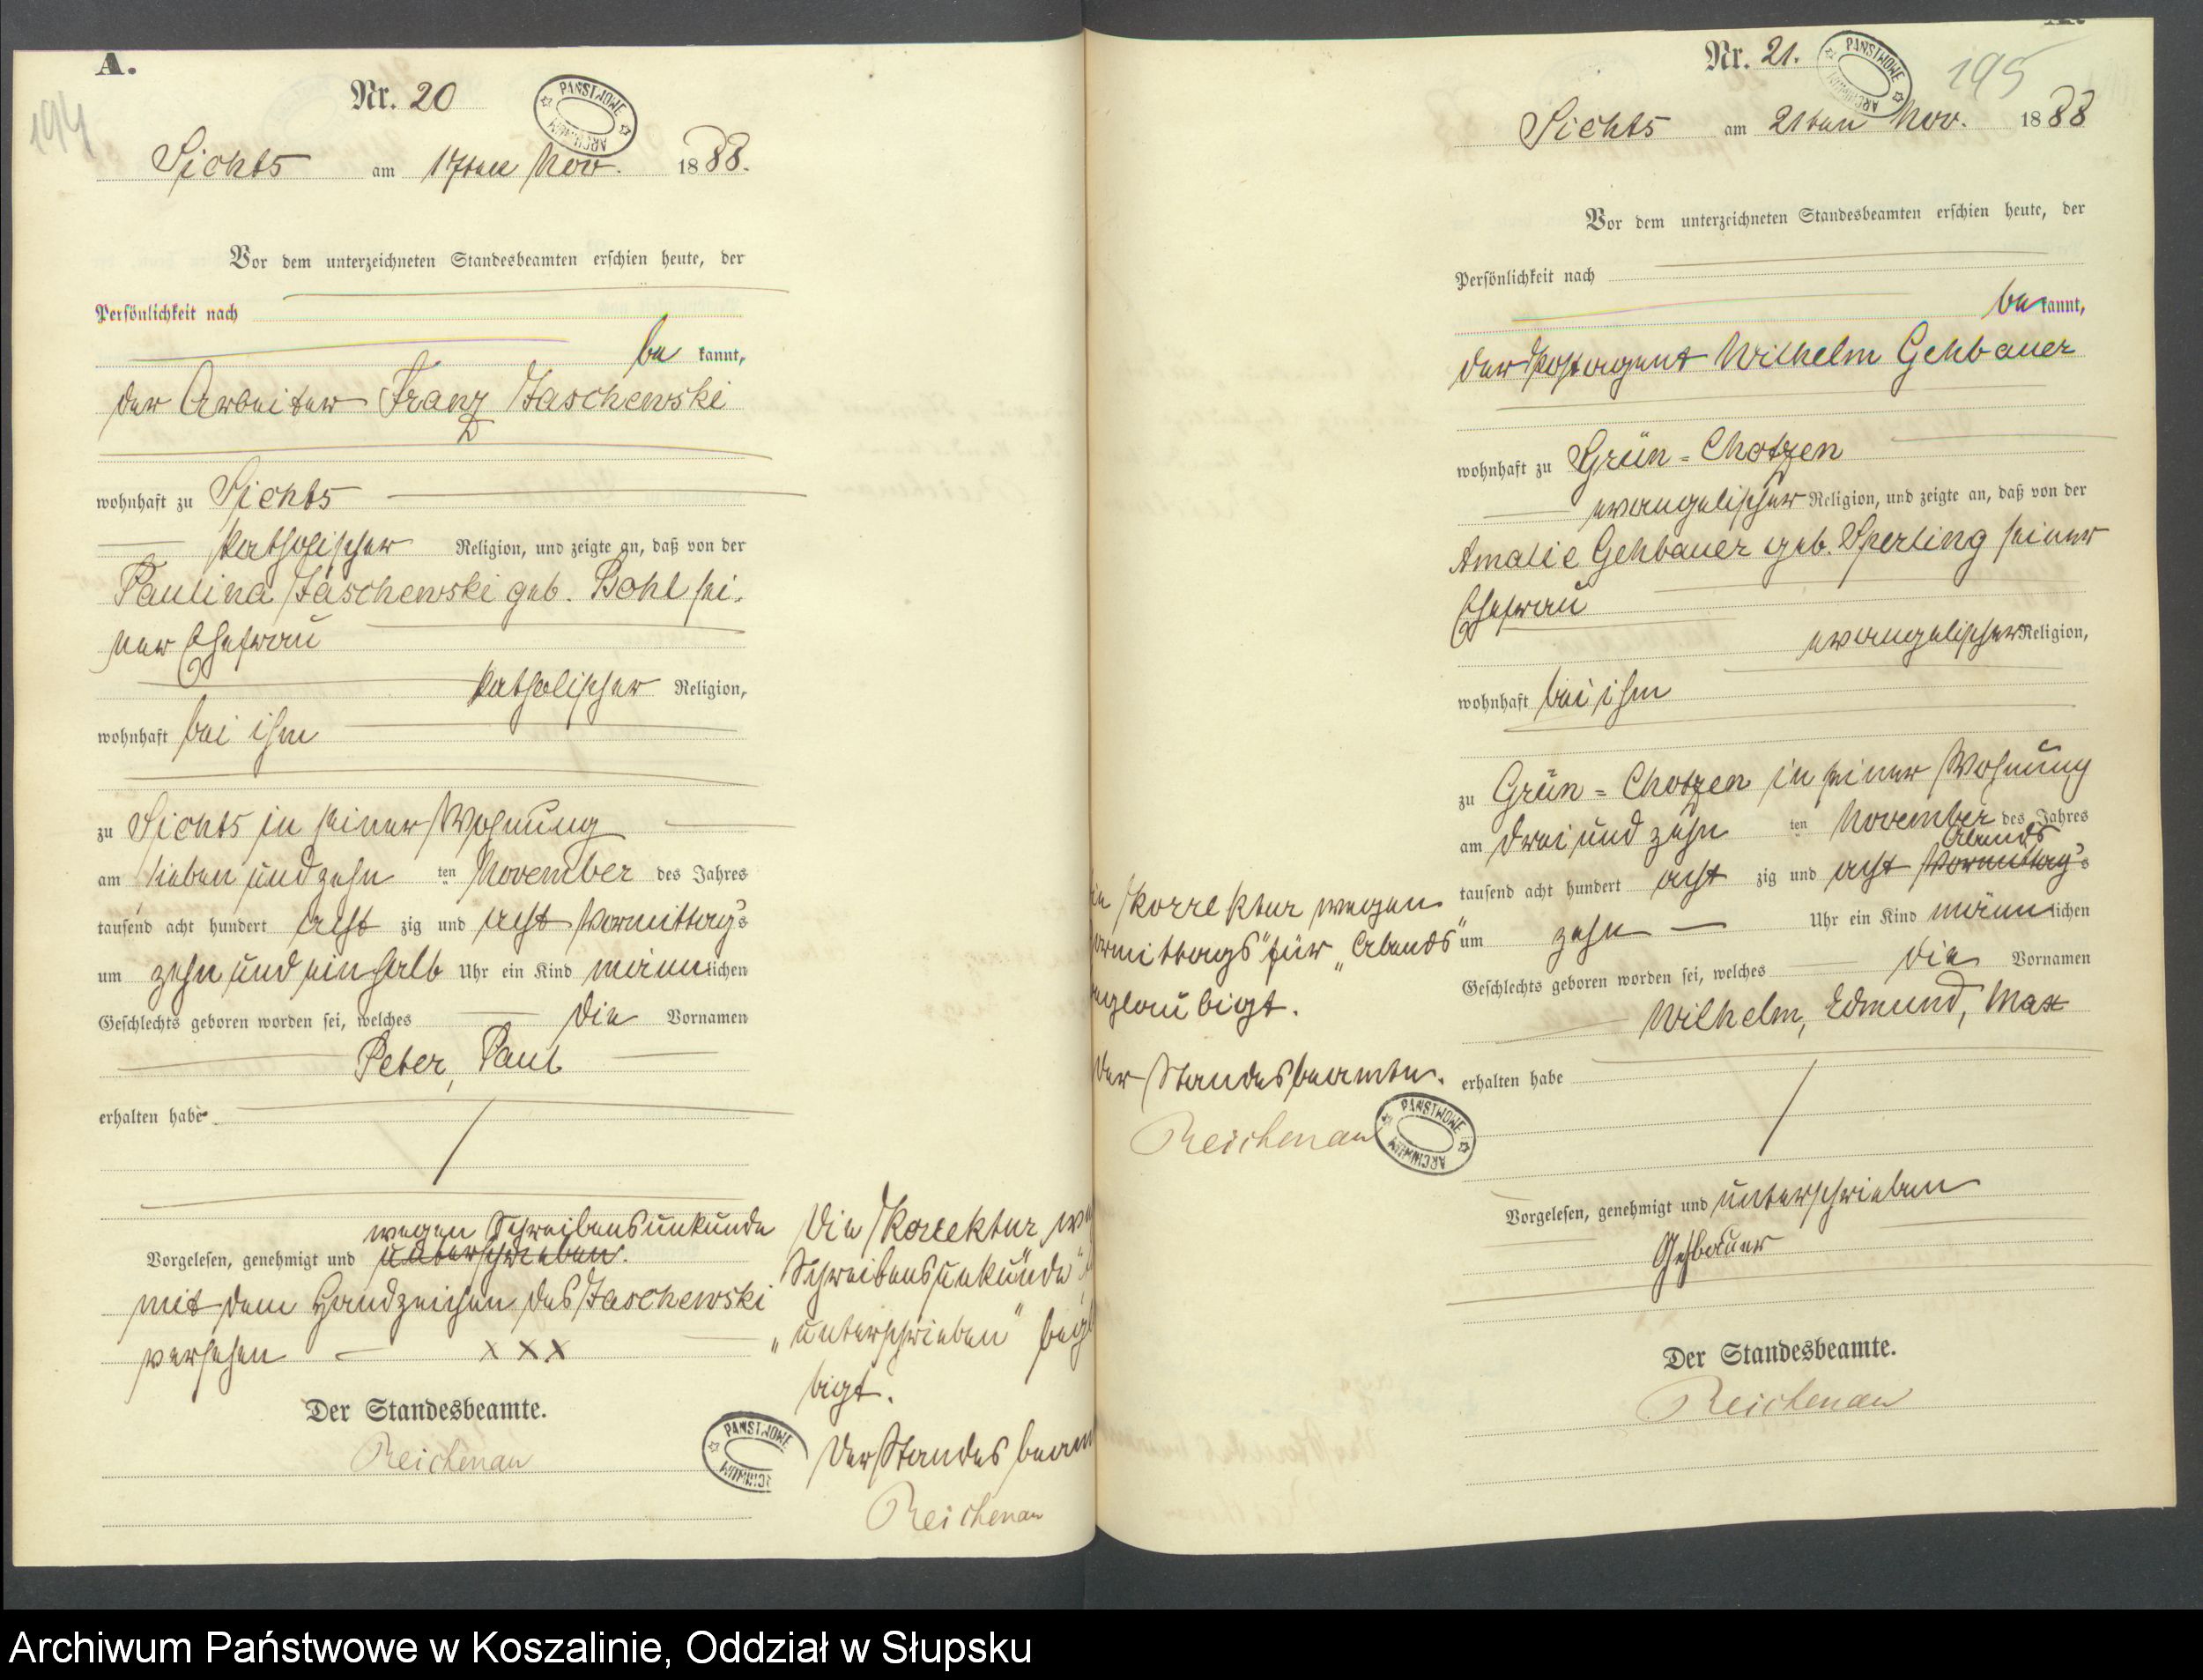 A.
194
Nr. 20
PAŃSTWOWE ARCHIWUM
Sichts am 17ten Nov. 1888.
Vor dem unterzeichneten Standesbeamten erschien heute, der
Persönlichkeit nach
be kannt,
der Arbeiter Franz Jaschewski
wohnhaft zu Sichts
katholischer Religion, und zeigte an, daß von der
Paulina Jaschewski geb. Bohl sei-
ner Ehefrau
katholischer Religion,
wohnhaft bei ihm
zu Sichts in seiner Wohnung
am sieben und zehn ten November des Jahres
tausend acht hundert acht zig und acht Vormittags
um zehn und ein halb Uhr ein Kind männlichen
Geschlechts geboren worden sei, welches die Vornamen
Peter, Paul
erhalten habe.
wegen Schreibensunkunde
Vorgelesen, genehmigt und unterschrieben.
mit dem Handzeichen des Jaschewski
versehen x x x
Der Standesbeamte.
Reichenau
Die Korrektur we
Schreibensunkunde"
„unterschrieben" begl
bigt.
Der Standesbeam
Reichenau
PAŃSTWOWE ARCHIWUM
Nr. 21.
PAŃSTWOWE ARCHIWUM
195
Sichts am 21ten Nov. 1888
Vor dem unterzeichneten Standesbeamten erschien heute, der
Persönlichkeit nach
be kannt,
der Postagent Wilhelm Gehbauer
wohnhaft zu Grün-Chotzen
evangelischer Religion, und zeigte an, daß von der
Amalie Gehbauer geb. Sperling seiner
Ehefrau
evangelischer Religion,
wohnhaft bei ihm
zu Grün-Chotzen in seiner Wohnung
am drei und zehn ten November des Jahres
Abends
tausend acht hundert acht zig und acht Vormittags
um zehn Uhr ein Kind männlichen
Geschlechts geboren worden sei, welches die Vornamen
Wilhelm, Edmund, Max
erhalten habe
Vorgelesen, genehmigt und unterschrieben
Gehbauer
Der Standesbeamte.
Reichenau
ie Korrektur wegen
ormittags" für „Abends"
eglaubigt.
Der Standesbeamte.
Reichenau
PAŃSTWOWE ARCHIWUM
Archiwum Państwowe w Koszalinie, Oddział w Słupsku